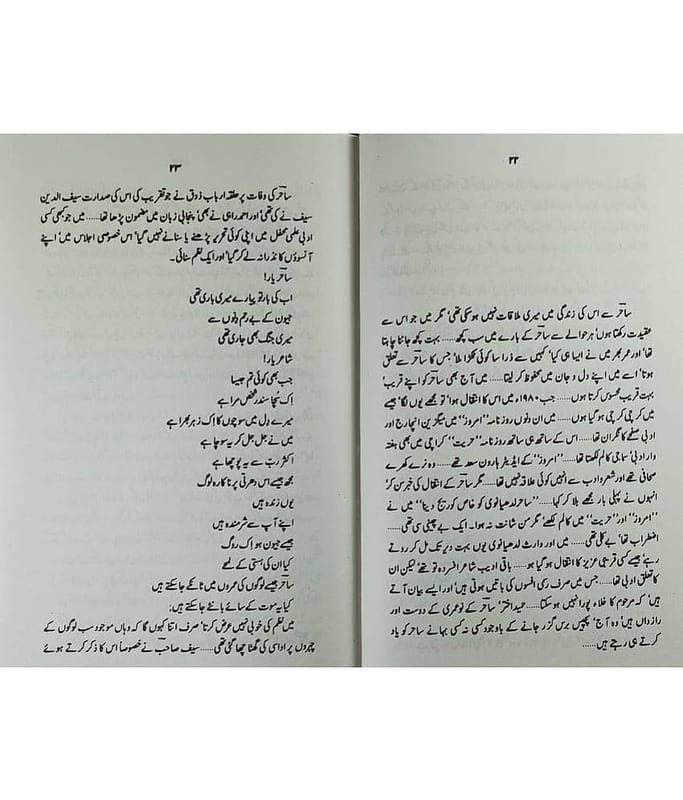 ۲۲
ساحر سے اس کی زندگی میں میری ملاقات نہیں ہو سکی تھی‘ مگر میں جو اس سے
عقیدت رکھتا ہوں‘ ہر حوالے سے ساحر کے بارے میں سب کچھ...... بہت کچھ جاننا چاہتا
تھا‘ اور عمر بھر میں نے ایسا ہی کیا‘ کہیں سے ذرا سا کوئی ٹکڑا ملا‘ جس کا ساحر سے تعلق
ہوتا‘ اسے میں اپنے دل و جان میں محفوظ کر لیتا...... میں آج بھی ساحر کو اپنے قریب‘
بہت قریب محسوس کرتا ہوں...... جب ۱۹۸۰ء میں اس کا انتقال ہوا‘ تو مجھے یوں لگا‘ جیسے
میں کرچی کرچی ہو گیا ہوں...... میں ان دنوں روزنامہ ’’امروز‘‘ میں میگزین انچارج اور
ادبی صفحے کا نگران تھا...... اس کے ساتھ ہی ساتھ روزنامہ ’’حریت‘‘ کراچی میں بھی ہفتہ
وار ادبی‘ سماجی کالم لکھتا تھا...... ’’امروز‘‘ کے ایڈیٹر ہارون سعد تھے...... وہ نرے کھرے
صحافی تھے اور شعر و ادب سے انہیں کوئی علاقہ نہیں تھا...... مگر ساحر کے انتقال کی خبر سن کر‘
انہوں نے پہلی بار مجھے بلا کر کہا...... ’’ساحر لدھیانوی کو خاص کوریج دینا‘‘ میں نے
’’امروز‘‘ اور ’’حریت‘‘ میں کالم لکھے‘ مگر من شانت نہ ہوا۔ ایک بے چینی سی تھی......
اضطراب تھا‘ بے کلی تھی...... میں اور وارث لدھیانوی یوں بہت دیر تک مل کر روتے
رہے‘ جیسے کسی قریبی عزیز کا انتقال ہو گیا ہو...... باقی ادیب شاعر افسردہ تو تھے‘ لیکن ان
کا تعلق ادبی تھا...... جس میں صرف رسمی افسوس کی باتیں ہوتی ہیں‘ اور ایسے بیان آتے
ہیں‘ کہ مرحوم کا خلاء پورا نہیں ہو سکتا...... حمید اختر‘ ساحر کے نوعمری کے دوست اور
رازداں ہیں‘ وہ آج‘ پچیس برس گزر جانے کے باوجود کسی نہ کسی بہانے ساحر کو یاد
کرتے ہی رہتے ہیں......
۲۳
ساحر کی وفات پر حلقہ ارباب ذوق نے جو تقریب کی اس کی صدارت سیف الدین
سیف نے کی تھی‘ اور احمد راہی نے بھی‘ پنجابی زبان میں مضمون پڑھا تھا...... میں جو بھی کسی
ادبی علمی محفل میں اپنی کوئی تحریر پڑھنے یا سنانے نہیں گیا‘ اس خصوصی اجلاس میں‘ اپنے
آنسوؤں کا نذرانہ لے کر گیا‘ اور ایک نظم سنائی۔
ساحر یار!
اب کی بار تو پیارے میری باری تھی
جیون کے بے رحم دنوں سے
میری جنگ بھی جاری تھی
شاعر یار!
جب بھی کوئی تم جیسا
اِک سچا سندر شخص مرا ہے
میرے دل میں سوچوں کا اِک زہر بھرا ہے
میں نے جل جل کر یہ سوچا ہے
اکثر ربّ سے یہ پوچھا ہے
مجھ جیسے اس دھرتی پر ناکارہ لوگ
یوں زندہ ہیں
اپنے آپ سے شرمندہ ہیں
جیسے جیون ہو اِک روگ
کیا ان کی ہستی کے لمحے
ساحر جیسے لوگوں کی عمروں میں ٹانکے جا سکتے ہیں
کیا یہ موت کے سائے بانٹے جا سکتے ہیں:
میں نظم کی خوبی نہیں عرض کرتا‘ صرف اتنا کہوں گا کہ وہاں موجود سب لوگوں کے
چہروں پر اداسی کی گھٹا چھا گئی تھی...... سیف صاحب نے خصوصاً اس کا ذکر کرتے ہوئے